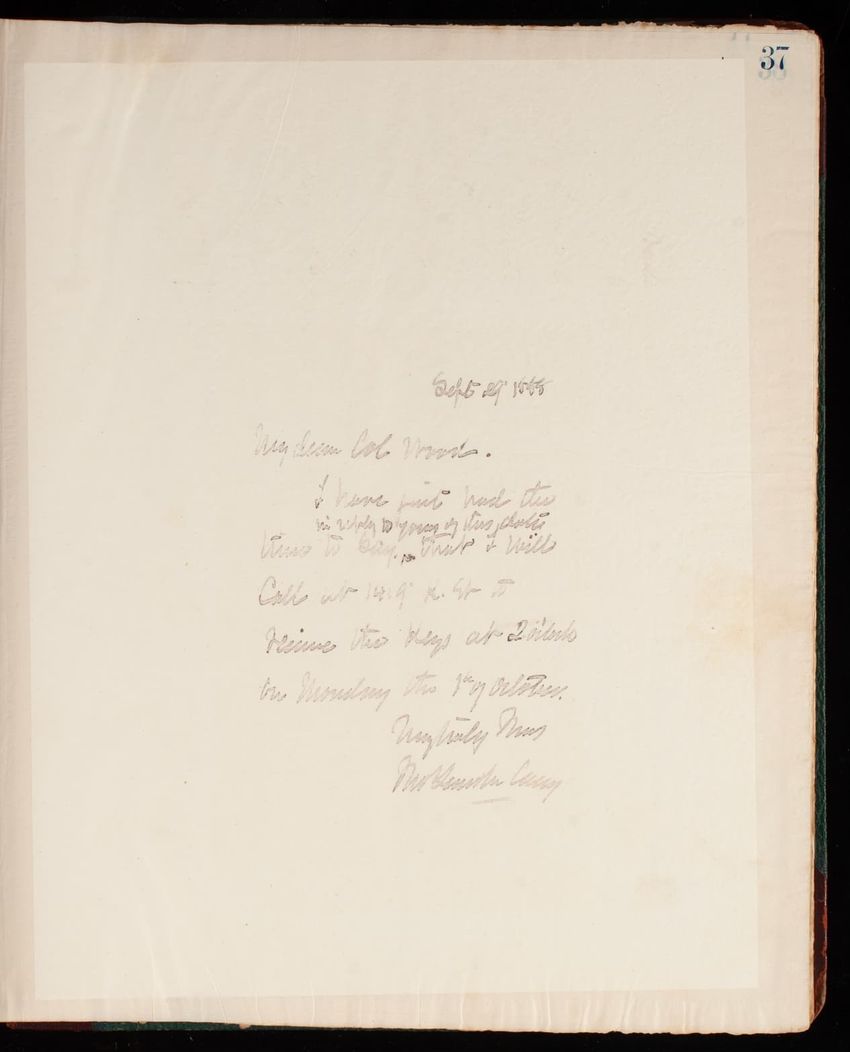 37
Sept 29 1888
My dear Col Wood.
I have just had the
in reply to yours of this date
time to say, that I will
Call at 1419 K. St to
receive the Keys at 2 o'clock
on Monday the 1st of October.
Very truly Yours
Thos Lincoln Casey